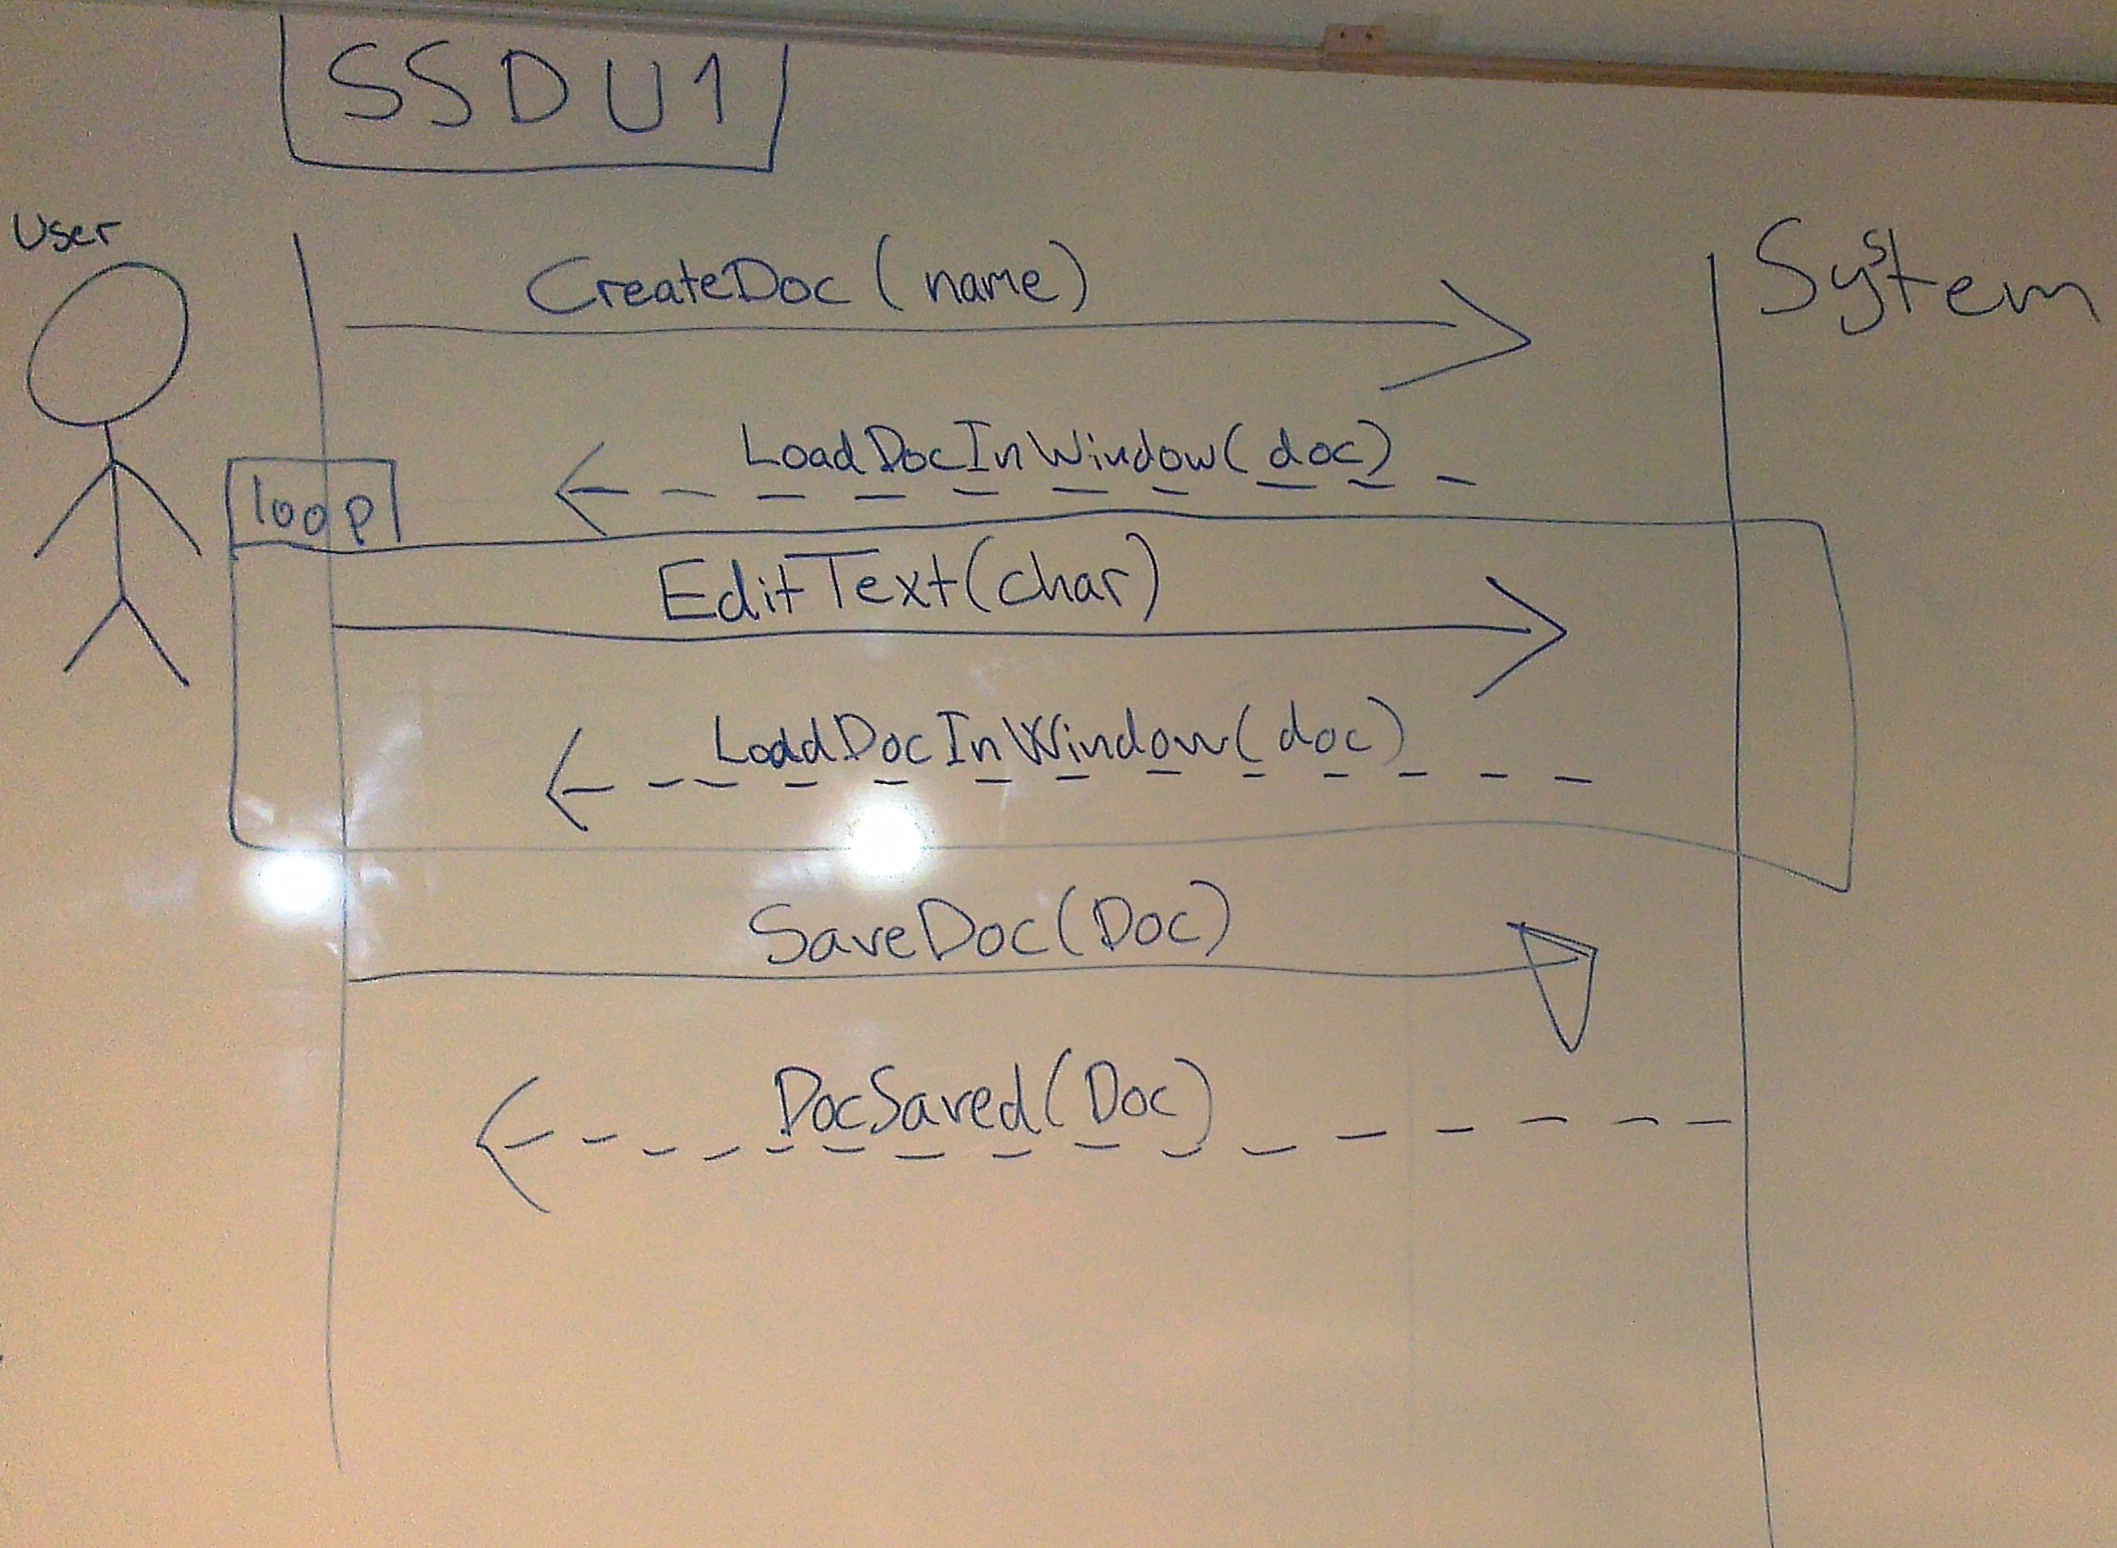 SSDU1
User
System
CreateDoc (name)
LoadDocInWindow(doc)
loop
EditText(char)
LoadDocInWindow(doc)
SaveDoc(Doc)
DocSaved(Doc)